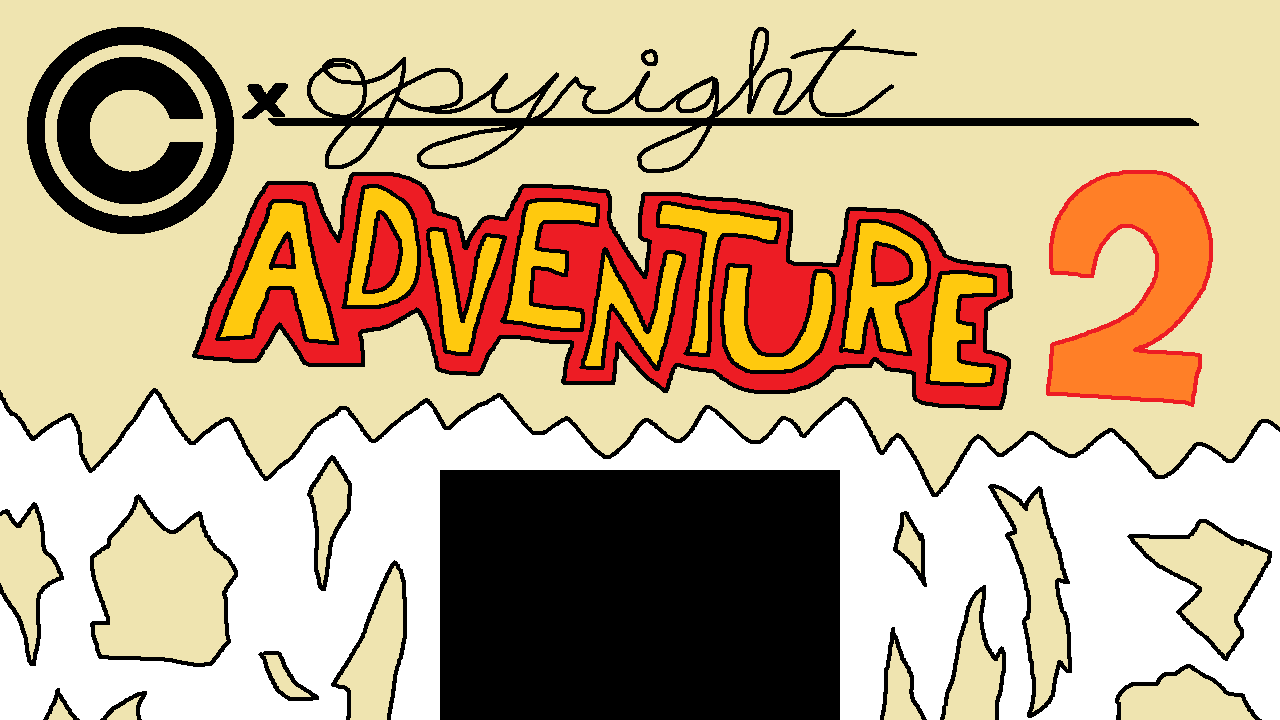 Cxopyright
ADVENTURE 2